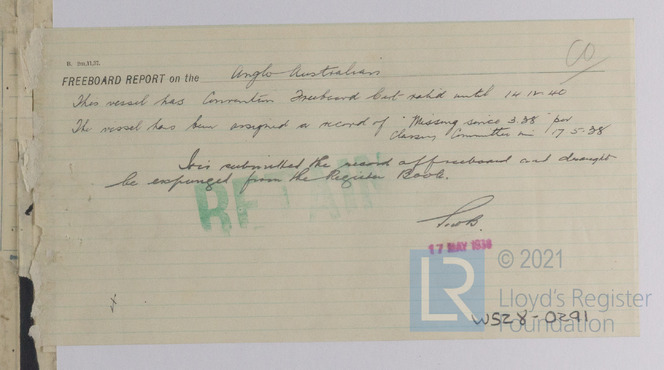 CO
FREEBOARD REPORT on the Anglo Australian
This vessel has Convention Freeboard Cert valid until 14.12.40
The vessel has been assigned a record of "Missing since 3.38" per
Classing Committee min 17.5.38
It is submitted the record of freeboard and draught
be expunged from the Register Book.
RETAIN
17 MAY 1938
LR
© 2021
Lloyd's Register
Foundation
W528-0291